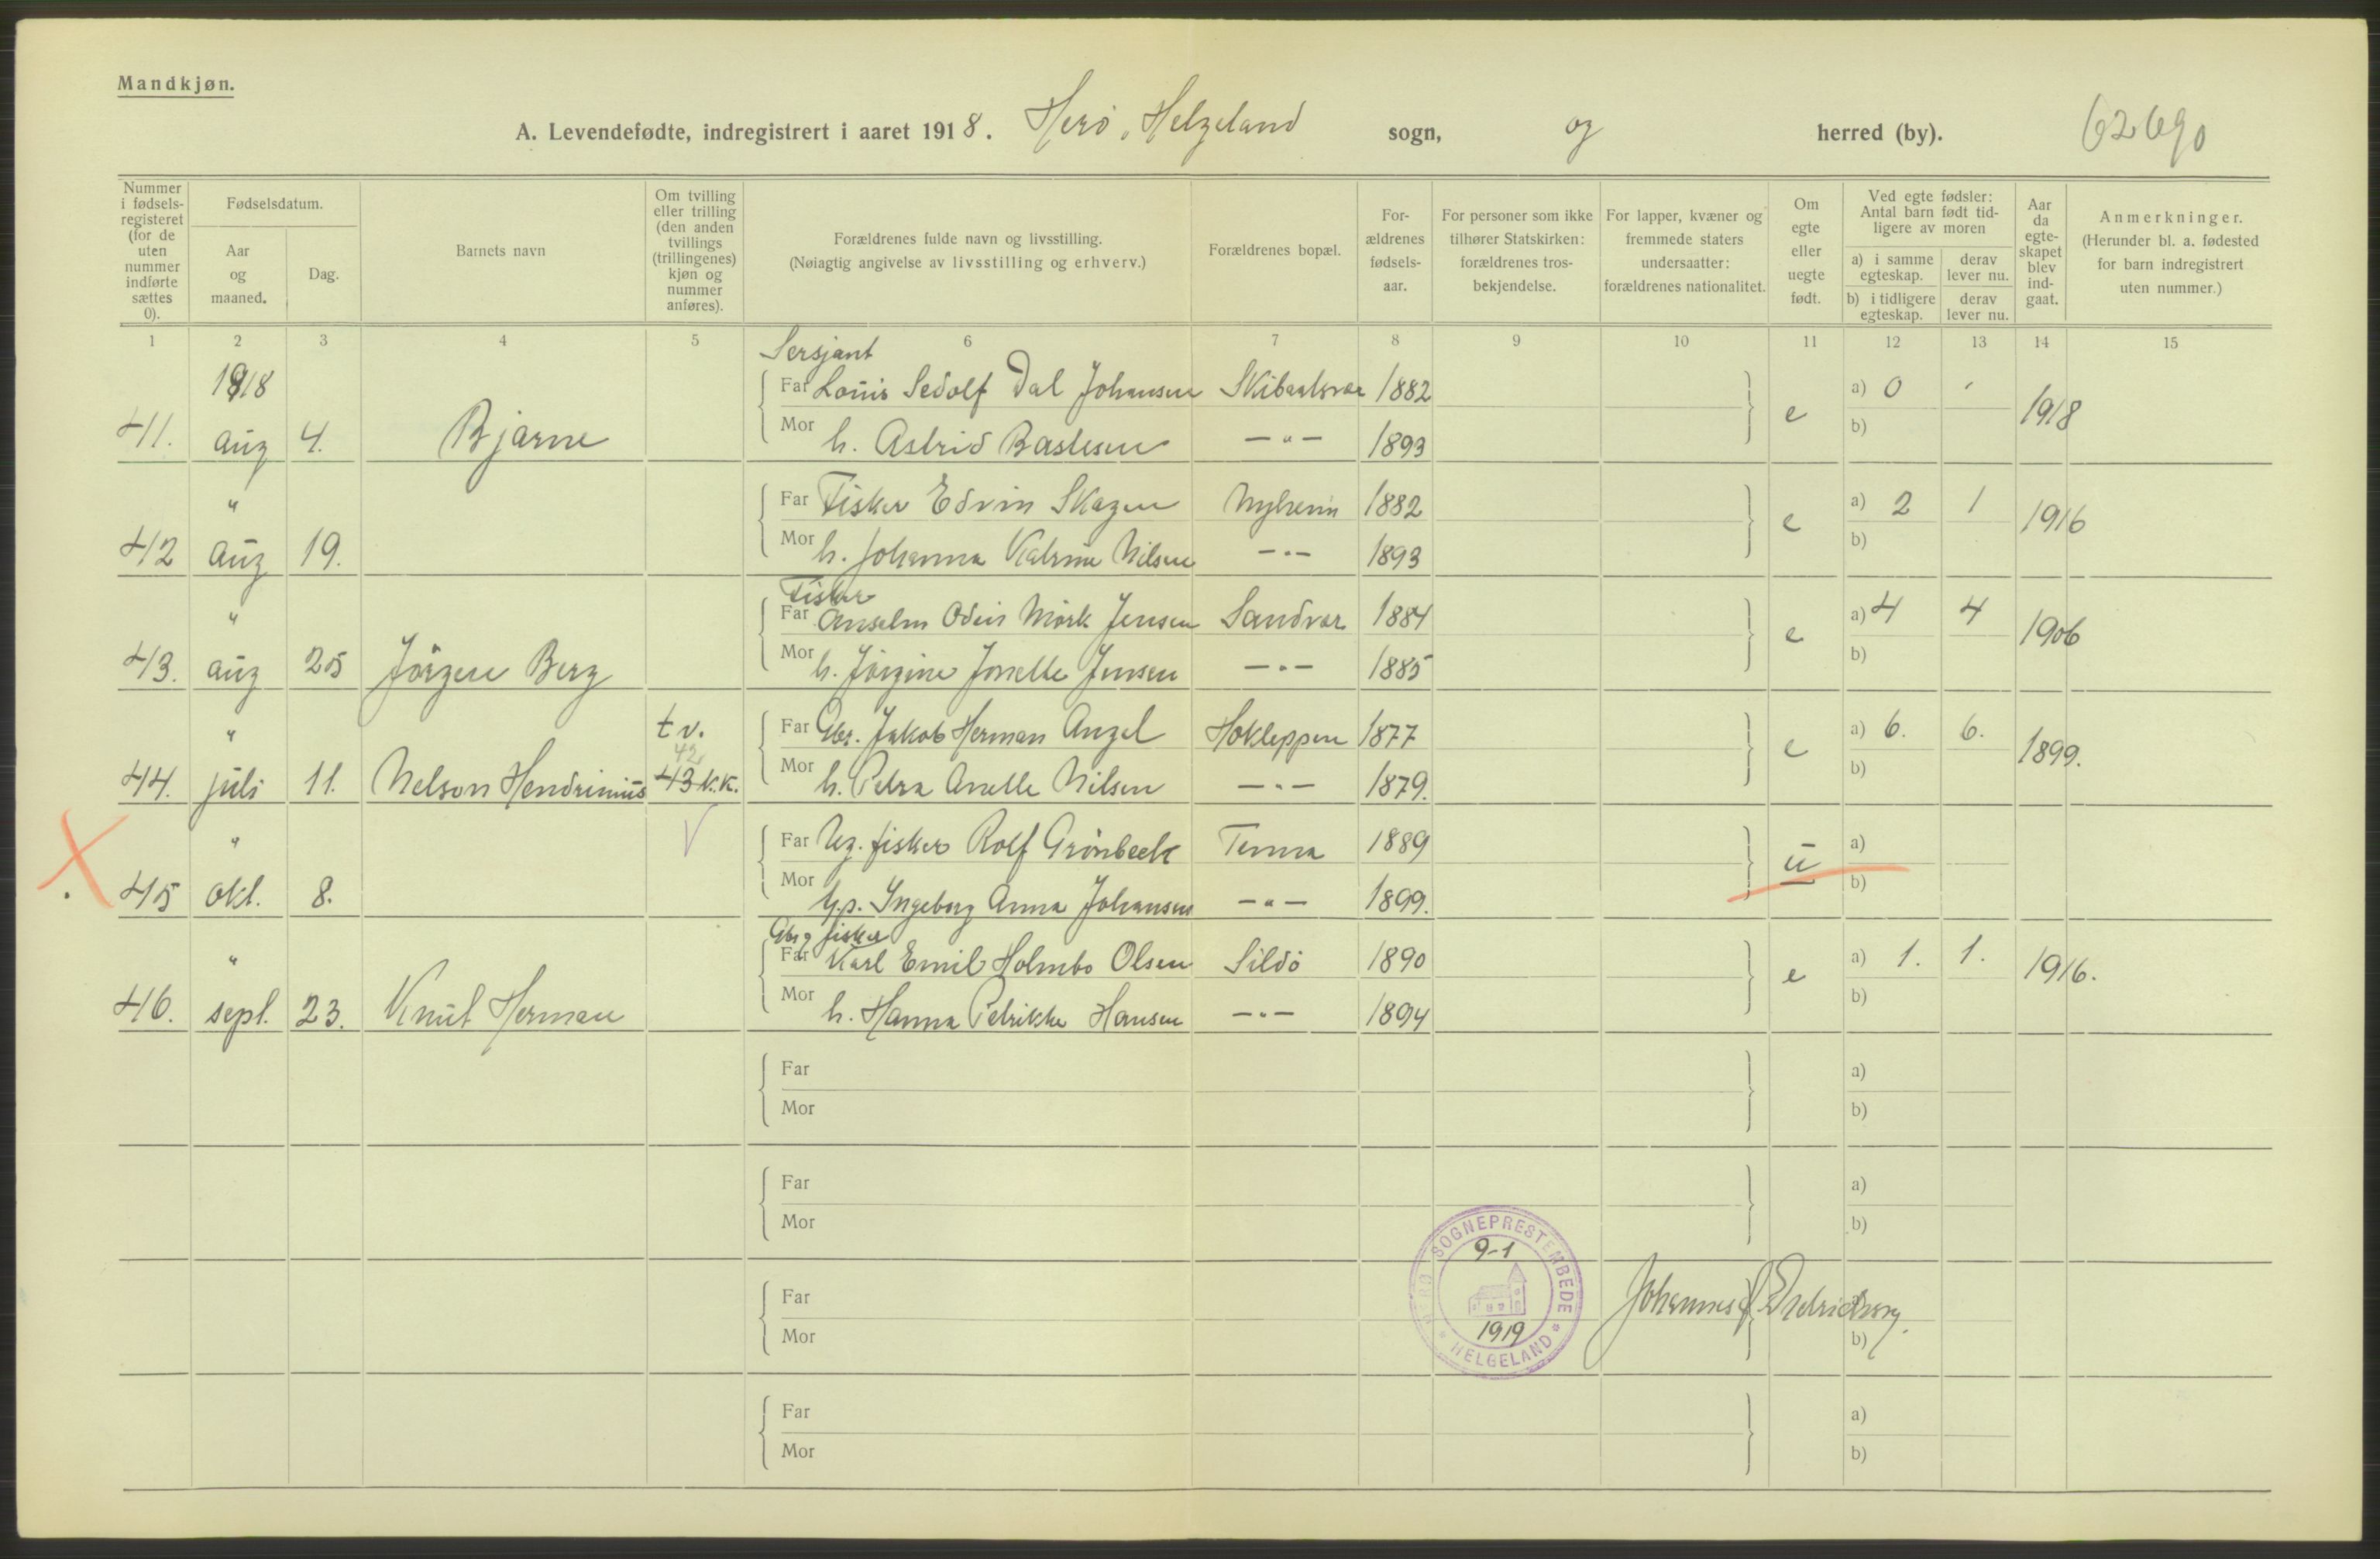 Mandkjøn.
A. Levendefødte, indregistrert i aaret 1918. Herö, Helgeland sogn, og herred (by). 62690
Nummer i fødsels-registeret (for de uten nummer indførte sættes 0).
Fødselsdatum.
Aar og maaned.
Dag.
Barnets navn
Om tvilling eller trilling (den anden tvillings (trillingenes) kjøn og nummer anføres).
Forældrenes fulde navn og livsstilling.
(Nøiagtig angivelse av livsstilling og erhverv.)
Forældrenes bopæl.
For-ældrenes fødsels-aar.
For personer som ikke tilhører Statskirken: forældrenes tros-bekjendelse.
For lapper, kvæner og fremmede staters undersaatter: forældrenes nationalitet.
Om egte eller uegte født.
Ved egte fødsler: Antal barn født tid-ligere av moren
a) i samme egteskap. derav lever nu.
b) i tidligere egteskap. derav lever nu.
Aar da egte-skapet blev ind-gaat.
Anmerkninger.
(Herunder bl. a. fødested for barn indregistrert uten nummer.)
1 2 3 4 5 6 7 8 9 10 11 12 13 14 15
1918 Sersjant
Far Louis Sedolf Dal Johansen 1882 a) 0
41. aug 4. Bjarne Mor h. Astrid Bastesen —"— 1893 e b) 1918
" Far Fisker Edvin Skagen 1882 a) 2 1
42 aug 19. Mor h. Johanna Katrine Nilsen —"— 1893 e b) 1916
" Fisker
Far Anselm Odin Mörk Jensen Sandvær 1884 a) 4 4
43. aug 25 Jörgen Berg Mor h. Jörgine Jonette Jensen —"— 1885 e b) 1906
" tv. Far Gbr. Jakob Herman Angel Hokleppen 1877 a) 6. 6.
42
44. juli 11. Nelson Hendrinius 43 k.k. Mor h. Petra Anette Nilsen —"— 1879. e b) 1899.
" Far Ug. fisker Rolf Grönbeck Tenna 1889 a)
45 okt. 8. Mor Ingeborg Anna Johansen —"— 1899. u b)
" Gbr og fisker
Far Karl Emil Holmbo Olsen Sildö 1890 a) 1. 1.
46. sept. 23. Knut Herman Mor h. Hanna Petrikke Hansen —"— 1894 e b) 1916.
Far a)
Mor b)
Far a)
Mor b)
HERØ SOGNEPRESTEMBEDE
9-1
1919
* HELGELAND *
Johannes
Far
Mor b)
Far a)
Mor b)